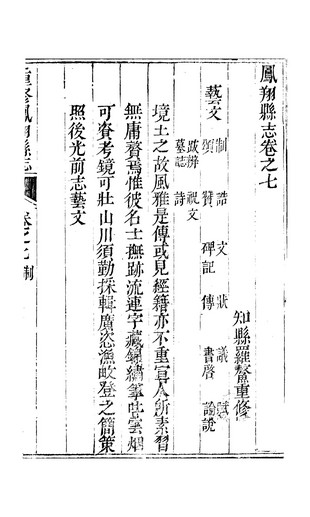 鳳翔縣志卷之七
知縣羅鰲重修
藝文 制 誥 文 狀 議 賦
頌 贊 碑記 傳 書啓 論說
跋辭 祝文
墓誌 詩
境土之故風雅是傳或見經籍亦不重宣人所素習
無庸贅焉惟彼名士撫跡流連字藏錦繡筆吐雲烟
可資考鏡可壯山川須勤採輯廣恣漁畋登之簡策
照後光前志藝文
重修鳳翔縣志
卷之七 制